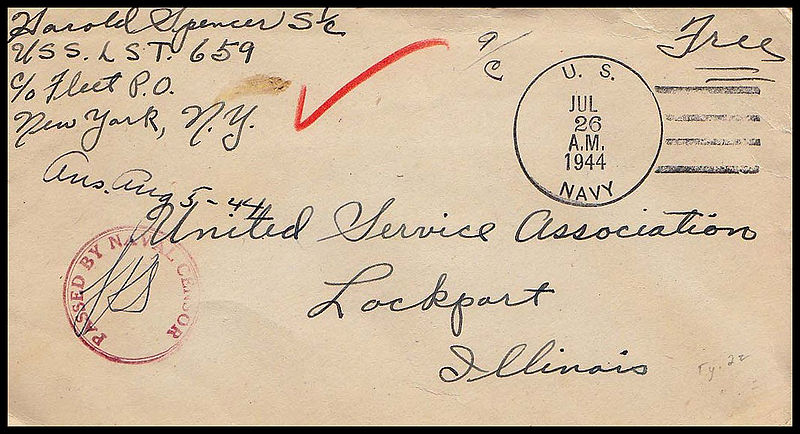 Harold Spencer S 1/c
U.S.S. L.S.T. 659
c/o Fleet P.O.
New York, N.Y.
Free
U. S.
JUL
26
A.M.
1944
NAVY
Ans. Aug 5-44
United Service Association
Lockport
Illinois
PASSED BY NAVAL CENSOR